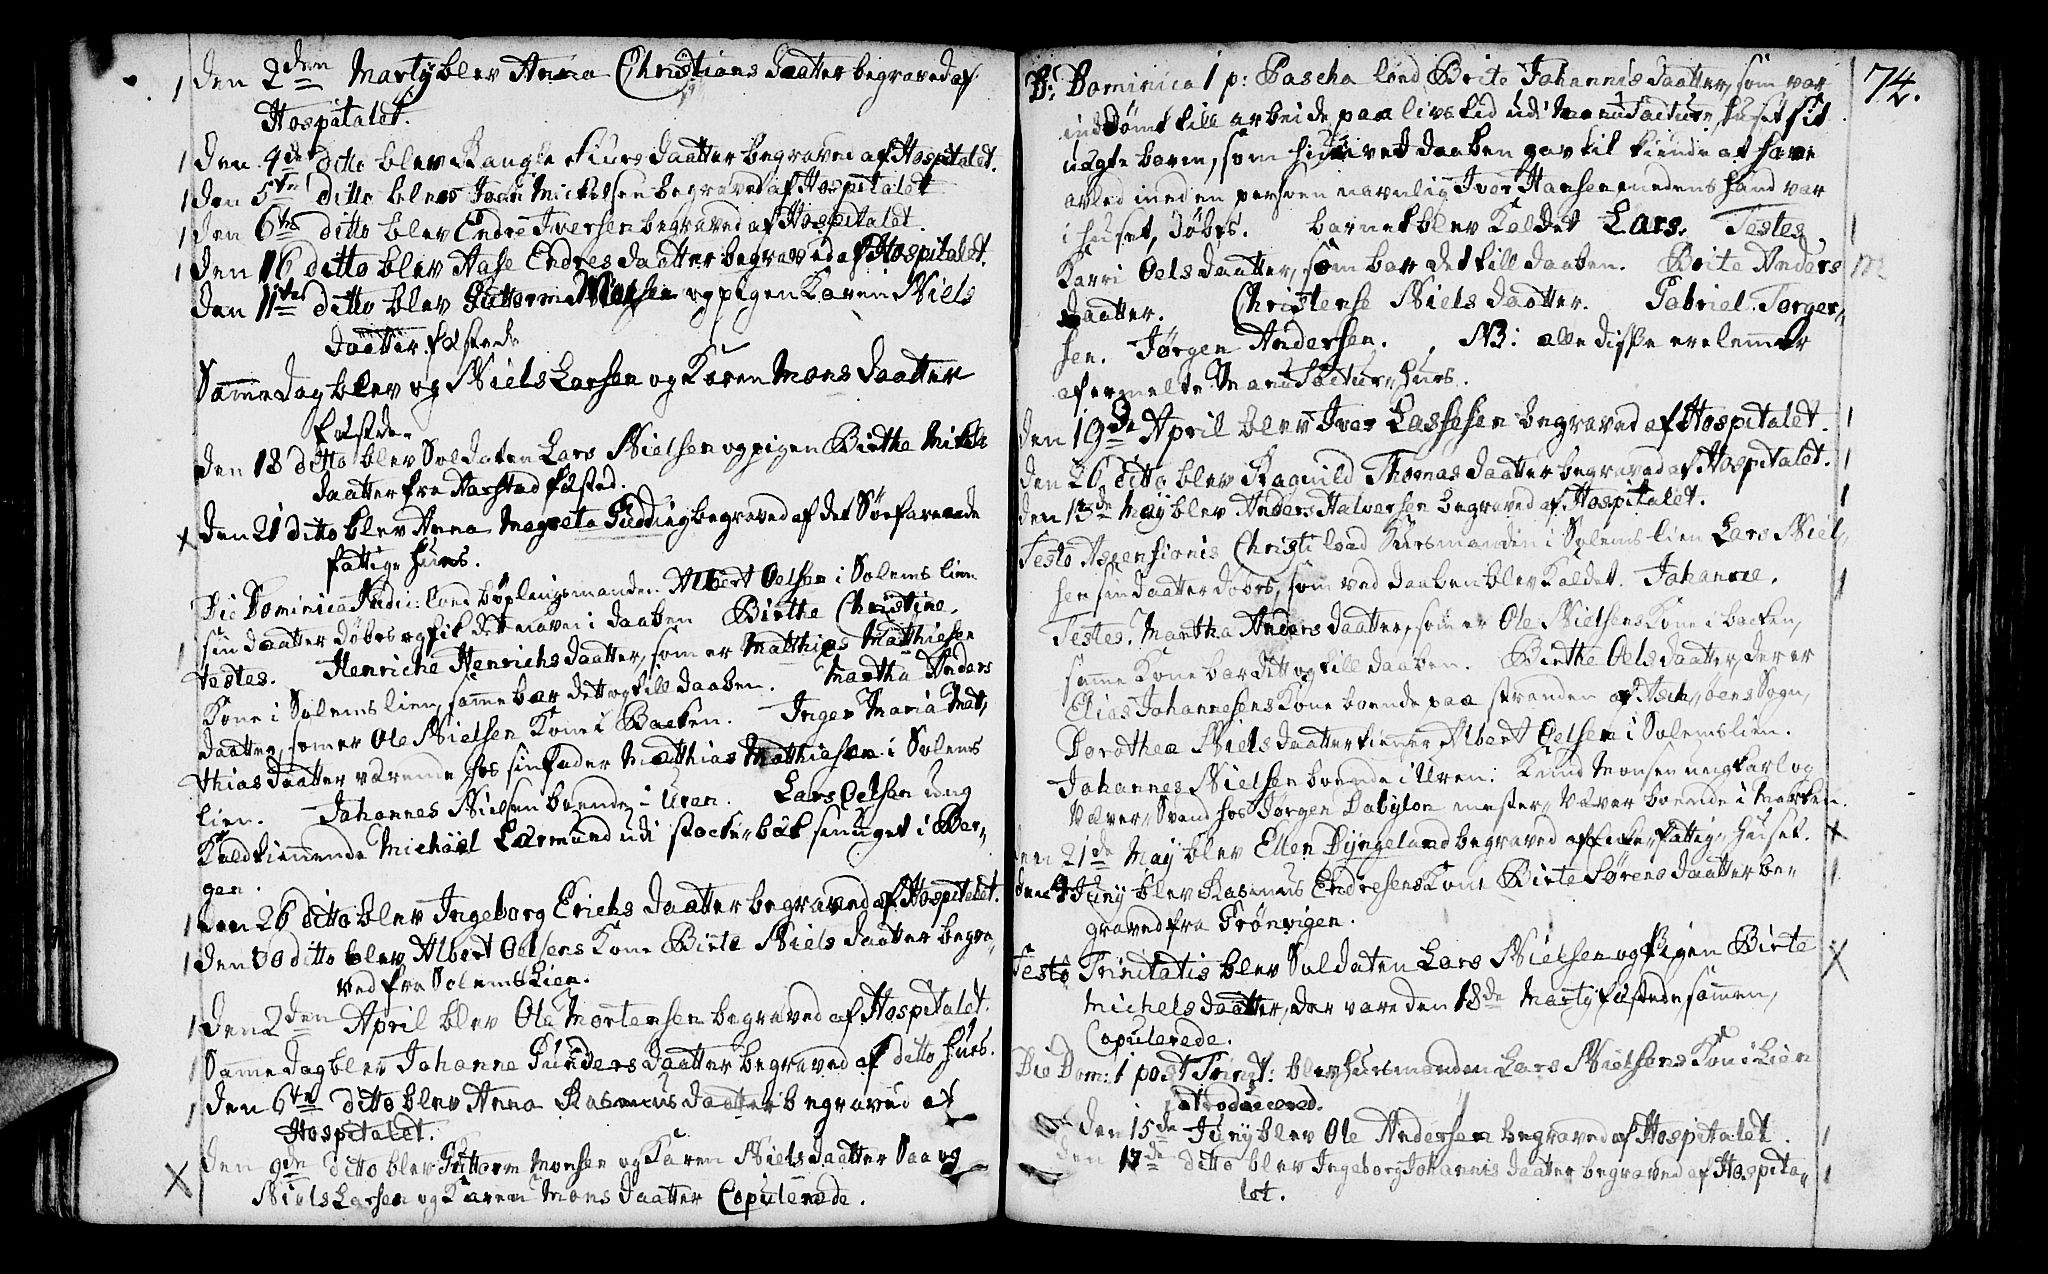 1 den 2den Martÿ blev Anna Christians daatter begraved af
Hospitalet.
1 den 4de ditto blev Raugle Siurs daatter begraved af Hospitalet.
1 den 5te ditto blev Joen Mickelsen begraved af Hospitalet
1 den 6te ditto blev Endre Iversen begraved af Hospitalet.
1 den 16 ditto blev Aase Endres daatter begraved af Hospitalet.
den 11te ditto blev Guttorm Monsen og pigen Karen Niels
daatter fæstede
Samme dag blev og Niels Larsen og Karen Mons daatter
fæstede.
den 18 ditto blev Soldaten Lars Nielsen og pigen Birthe Mikels
daatter fra Aarstad fæsted.
x den 21 ditto blev Anna Magreta Gudding begraved af det Söefarende
fattige huus.
Die Dominica Judic: lod böxlingsmanden Albert Oelsen i Solems lien
1 sin daatter döbes og fik det navn i daaben Birthe Christine.
testes. Henriche Henrichs daatter, som er Matthias Matthiesen
Kone i Solems lien, samme bar dett og till daaben. Martha Anders
daatter, som er Ole Nielsen Kone i Backen. Inger Maria Mat,,
thias daatter værende hos sin fader Matthias Mathiesen i Solems
lien. Johannes Nielsen boende i Uren. Lars Oelsen ung
Karl tienende Michael Lærmund udi stocker bak smuget i Ber,,
gen.
1 den 26 ditto blev Ingeborg Erichs daatter begraved af Hospitalet.
1 den 30 ditto blev Albert Oelsens Kone Birte Niels daatter begra,,
ved fra Solems Lien.
1 den 2den April blev Ole Mortensen begraved af Hospitalet.
1 Samme dag blev Johanne Gunders daatter begraved af ditto huus.
1 den 6te ditto blev Anna Rasmus daatter begraved af
Hospitalet.
X den 9de ditto blev Guttorm Monsen og Karen Niels daatter Saa og
Niels Larsen og Karen Mons daatter Copulerede.
74.
D: Dominica 1 p: Pascha lod Brite Johannis daatter, som var
inddömt till arbeide paa livstid udi Manufactur,, huset sit
uægte barn, som hun ved daaben gav til kiende at have
avled med en person navnlig Iver Hansen medens hand var
i huset, döbes. barnet blev kaldet Lars. Testes 1
Karri Oels daatter, som bar det till daaben. Brite Anders
daatter. Christense Niels daatter. Gabriel Torger,,
sen. Jørgen Andersen. NB: alle disse ere lemmer
af ermelte Manufactur,, huus.
den 19de April blev Iver Lassesen begraved af Hospitalet. 1
den 26 ditto blev Ragnild Thomas daatter begraved af Hospitalet. 1
den 13de Maÿ blev Anders Halversen begraved af Hospitalet. 1
Festo Ascensionis Christi lod Huusmanden i Solems lien Lars Niel,,
sen sin daatter döbes, som ved daaben blev kaldet. Johanne. 1
Testes. Martha Anders daatter, som er Ole Nielsens Kone i backen,
samme Kone bar dett og till daaben. Birthe Oels daatter, der er
Elias Johannesens Kone boende paa stranden af Ask,, öens Sogn,
Dorothea Niels daatter tiener Albert Oelsen i Solems lien.
Johannes Nielsen boende i Uren. Knud Monsen ungkarl og
Væver,, Svend hos Jørgen Babylon mester,, Væver boende i Marken.
den 21de Maÿ blev Ellen Dyngeland begraved af fattig,, Huset. x
den 4 Junÿ blev Rasmus Endresens Kone Birte Sørens daatter be- 1
graved fra Grönvigen.
Festo Trinitatis blev Soldaten Lars Nielsen og Pigen Birte X
Michels daatter, der vare den 18de Martÿ fæstede sammen,
Copulerede.
Die Dom: 1 post Trinit: blev huusmanden Lars Nielsens Kone i Lien
introduceered.
den 15de Junÿ blev Ole Andersen begraved af Hospitalet. 1
den 17de ditto blev Ingeborg Johannis daatter begraved af Hospita,, 1
let.